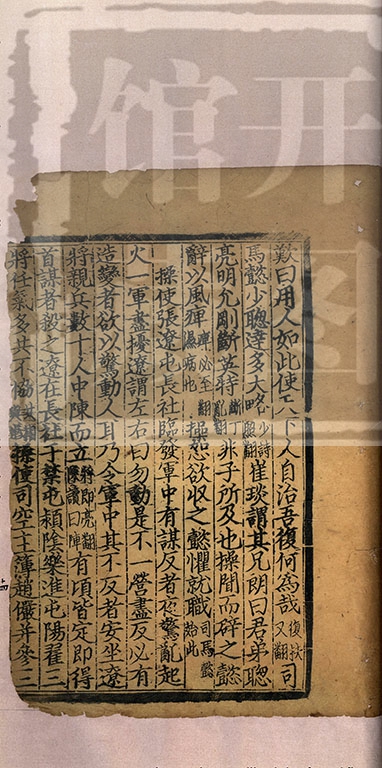 歎曰用人如此使天下人自治吾復何為哉復扶又翻司
馬懿少聰達多大略少詩照翻崔琰謂其兄朗曰君弟聰
亮明允剛斷英特斷丁亂翻非子所及也操聞而辟之懿
辭以風痹痹必至翻濕病也操怒欲收之懿懼就職司馬懿始此
操使張遼屯長社臨發軍中有謀反者夜驚亂起
火一軍盡擾遼謂左右曰勿動是不一營盡反必有
造變者欲以驚動人耳乃令軍中其不反者安坐遼
將親兵數十人中陳而立將即亮翻陳讀曰陣有頃皆定即得
首謀者殺之遼在長社于禁屯潁陰樂進屯陽翟三
將任氣多共不協操使司空主簿趙儼并參三
开
图
馆